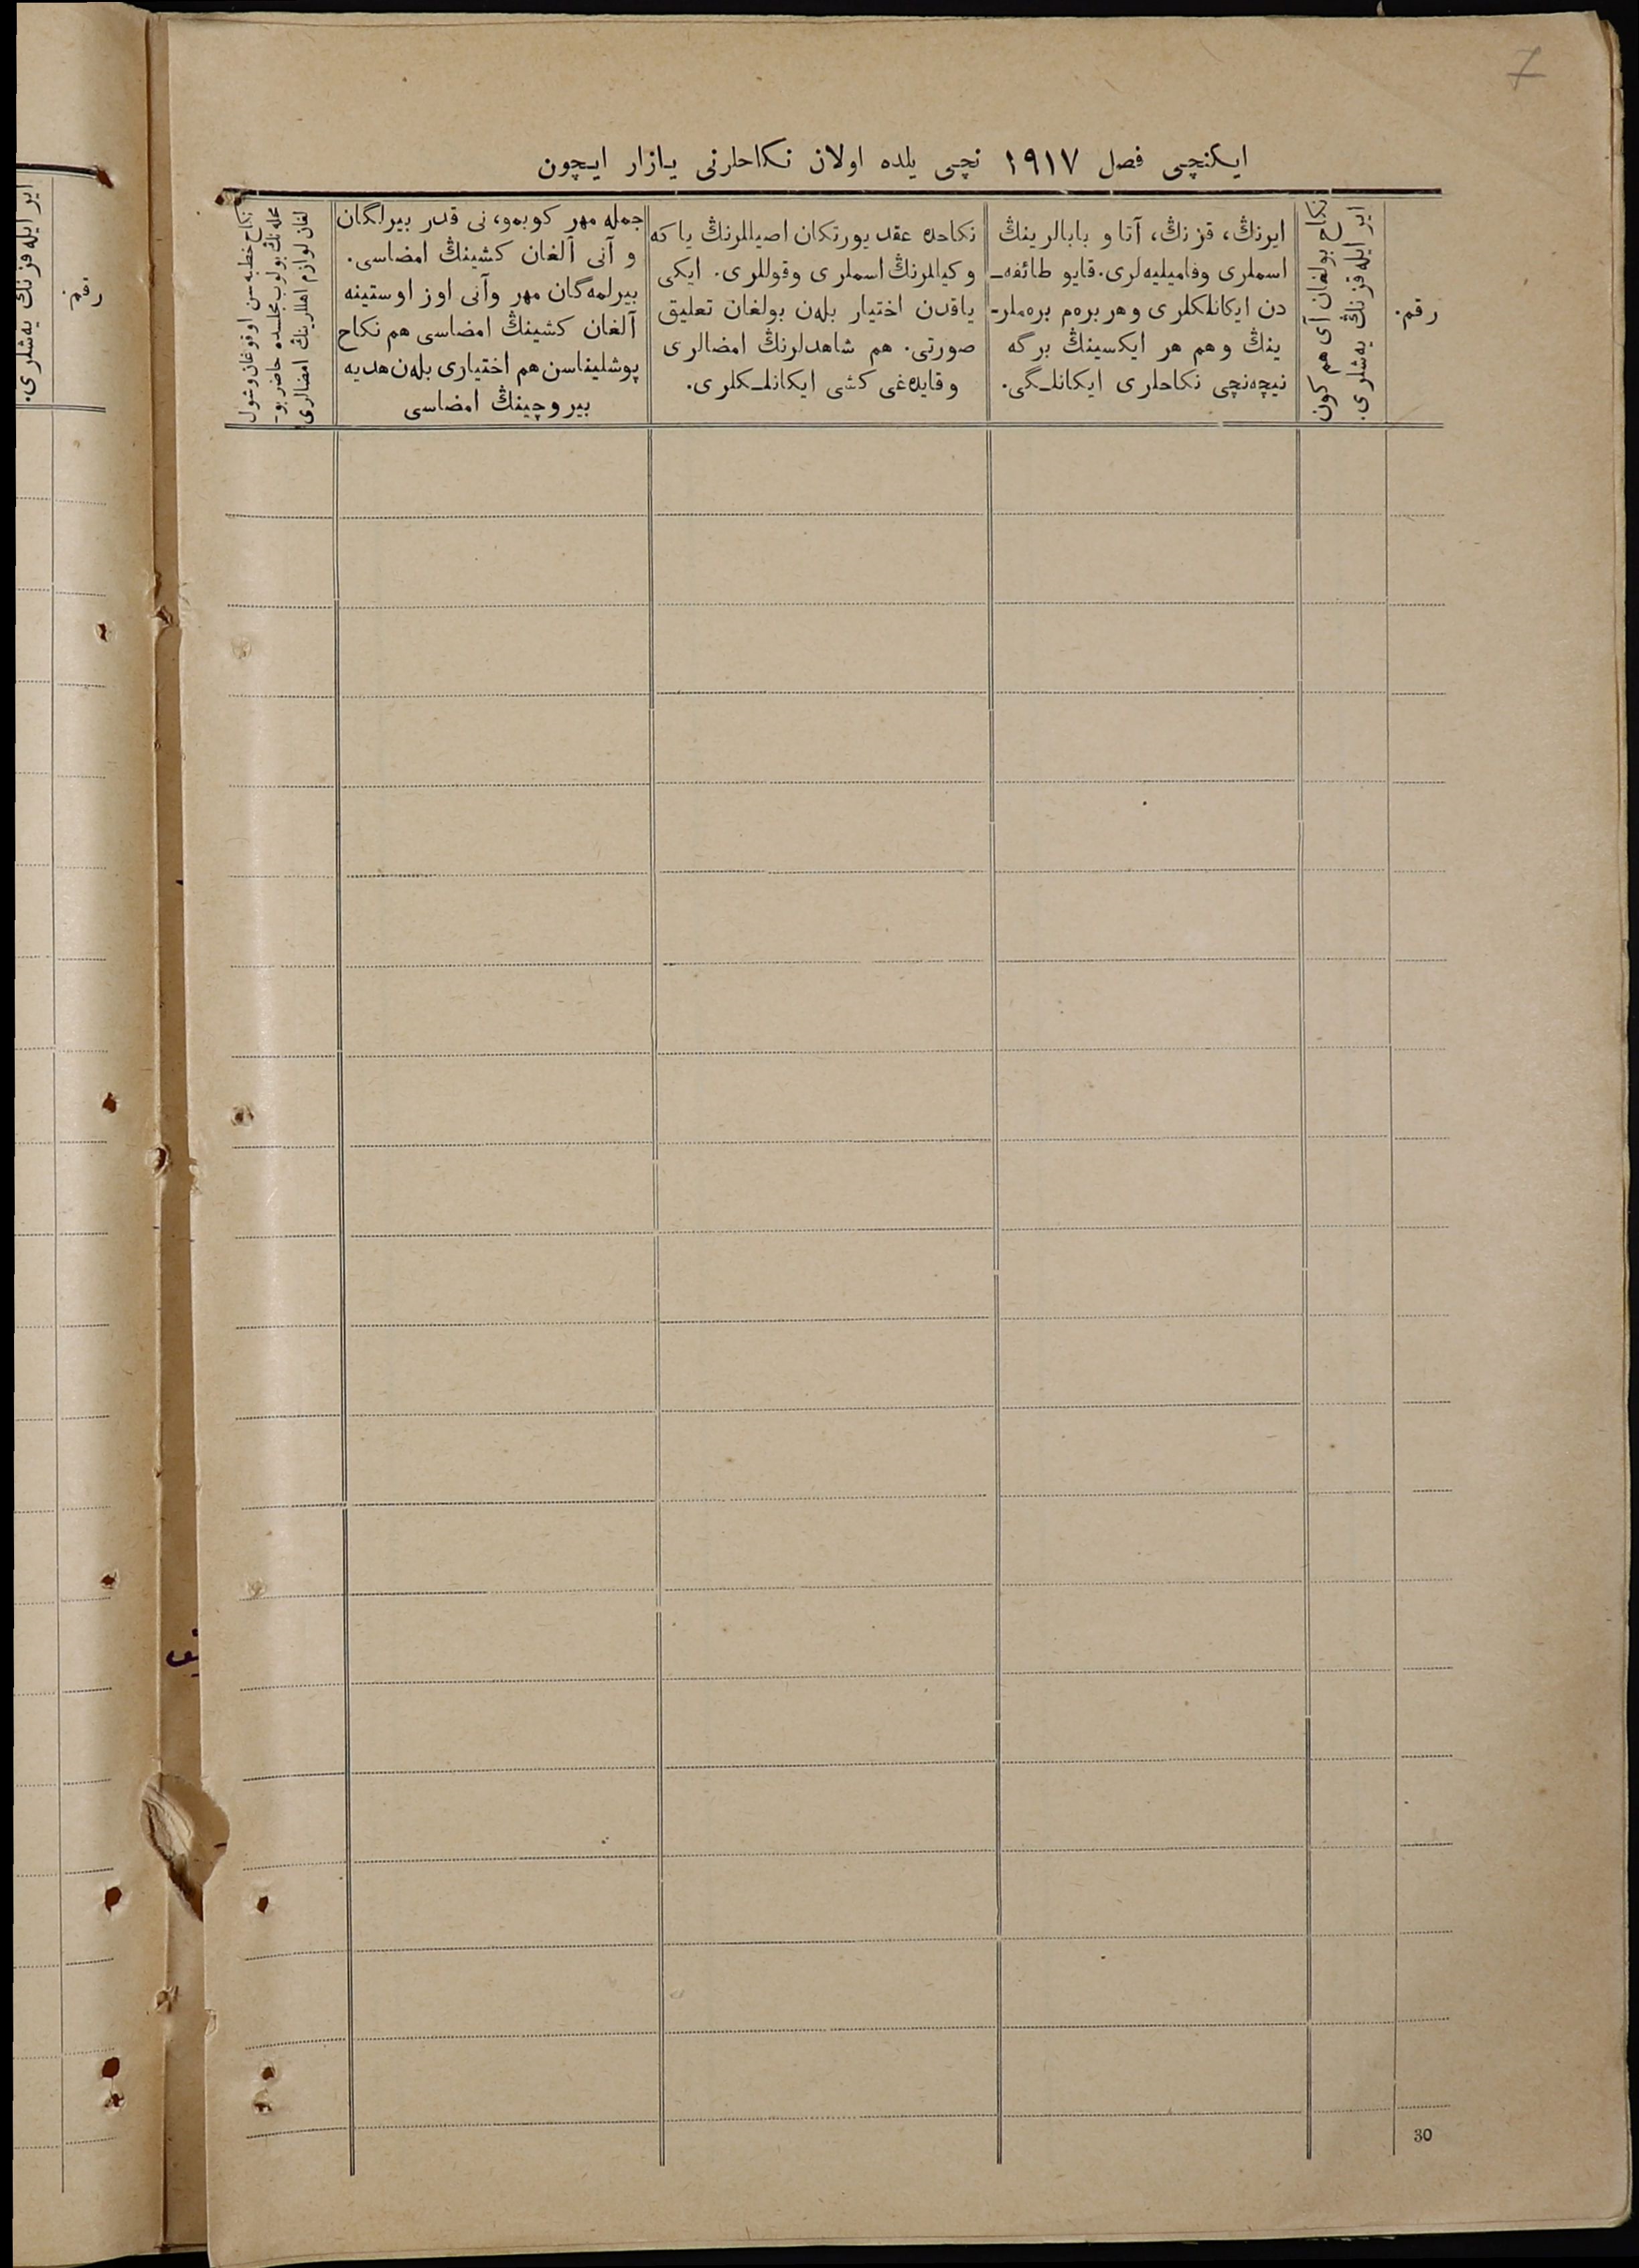 7
ایکنچی فصل ۱۹۱۷ نچی یلده اولان نکاحلرنی یازار ایچون
رقم.
ایر ایله قزنڭ یه‌شلری.
نکاح بولغان آی هم کون
ایرنڭ، قزنڭ، آتا و بابالرینڭ
اسملری وفامیلیه‌لری. قایو طائفه‌ـ
دن ایکانلکلری وهر بره‌م بره‌ملرـ
ینڭ وهم هر ایکسینڭ برگه
نیچه‌نچی نکاحلری ایکانلـگی.
نکاحده عقد یورتکان اصیللرنڭ یاکه
وکیللرنڭ اسملری وقوللری. ایکی
یاقدن اختیار بله‌ن بولغان تعلیق
صورتی. هم شاهدلرنڭ امضالری
وقایده‌غی کشی ایکانلـکلری.
جمله مهر کوبمو، نی قدر بیرلگان
و آنی آلغان کشینڭ امضاسی.
بیرلمه‌گان مهر وآنی اوز اوستینه
آلغان کشینڭ امضاسی هم نکاح
پوشلیناسن هم اختیاری بله‌ن هدیه
بیروچینڭ امضاسی
نکاح خطبه‌سن اوقوغان وشول
محله‌نڭ بولوب مجلسده حاضر بوـ
لغان لوازم اهللرینڭ امضالری
30
رقم.
ایر ایله قزنڭ یه‌شلری.